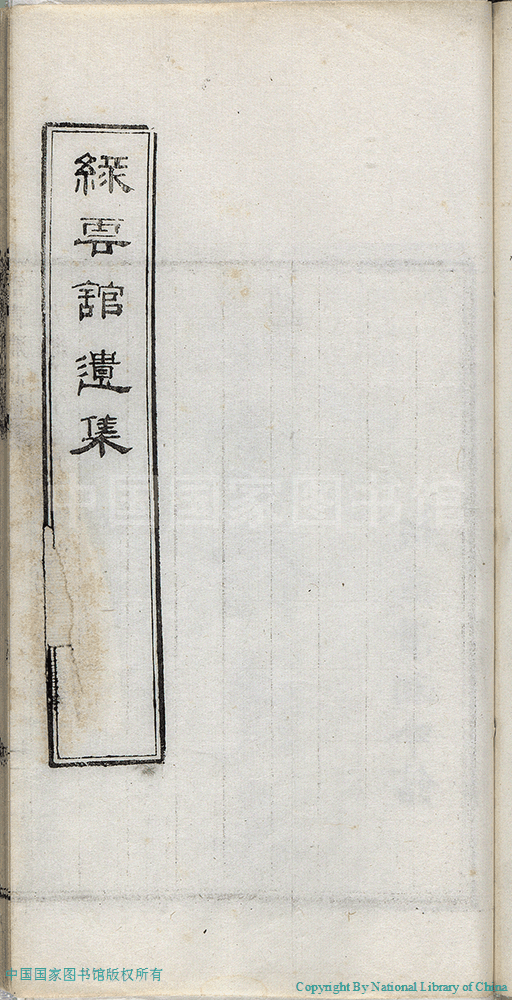 綠雲館遺集
中国国家图书馆
中国国家图书馆版权所有
Copyright By National Library of China